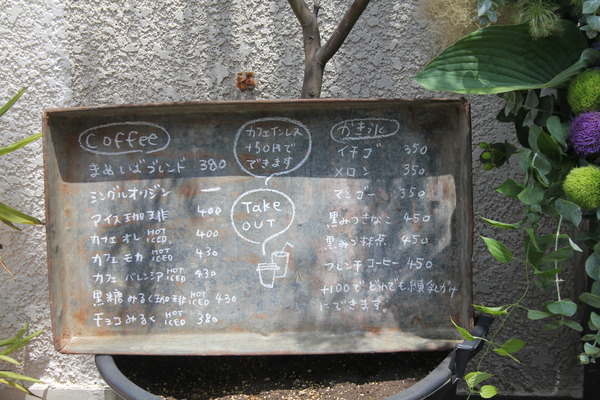 Coffee
まめいばブレンド 380
シングルオリジン ー
アイス珈琲 400
カフェオレ HOT ICED 400
カフェモカ HOT ICED 430
カフェバレンシア HOT ICED 430
黒糖みるく珈琲 HOT ICED 430
チョコみるく HOT ICED 380
カフェインレス
+50円で
できます
Take
OUT
かき氷
イチゴ 350
メロン 350
マンゴー 350
黒みつきなこ 450
黒みつ抹茶 450
フレンチコーヒー 450
+100でどれでも練乳がけ
にできます。